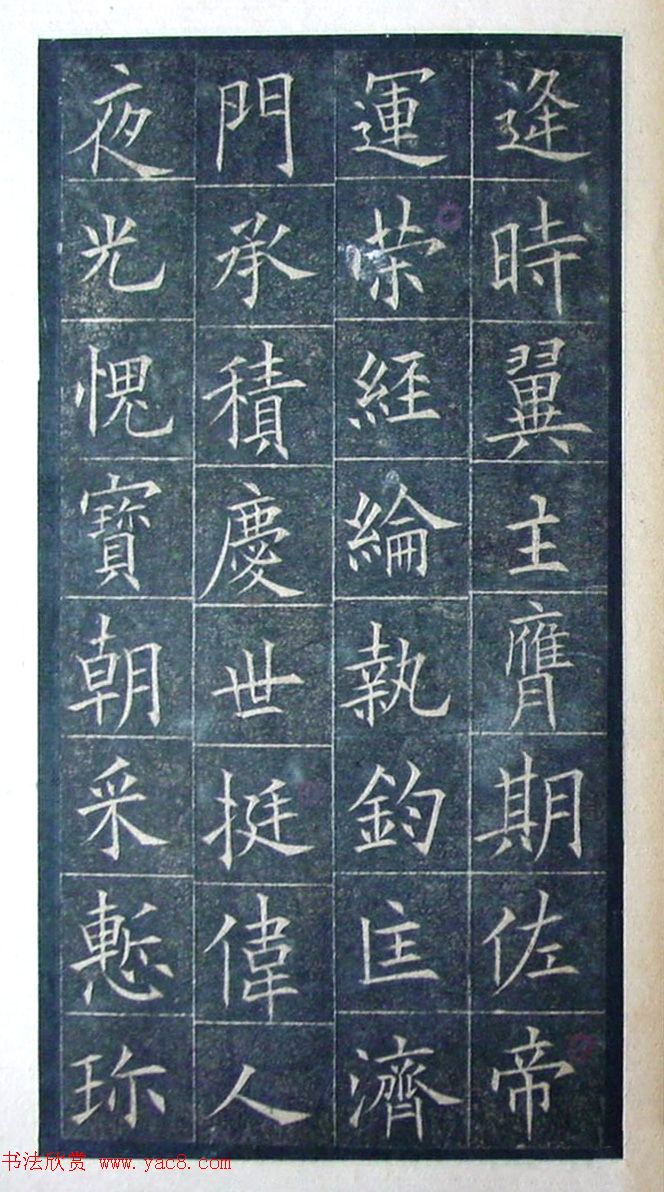 逢時翼主膺期佐帝
運荣經綸執鈞匡濟
門承積慶世挺偉人
夜光愧寶朝采慙珎
书法欣赏 www.yac8.com